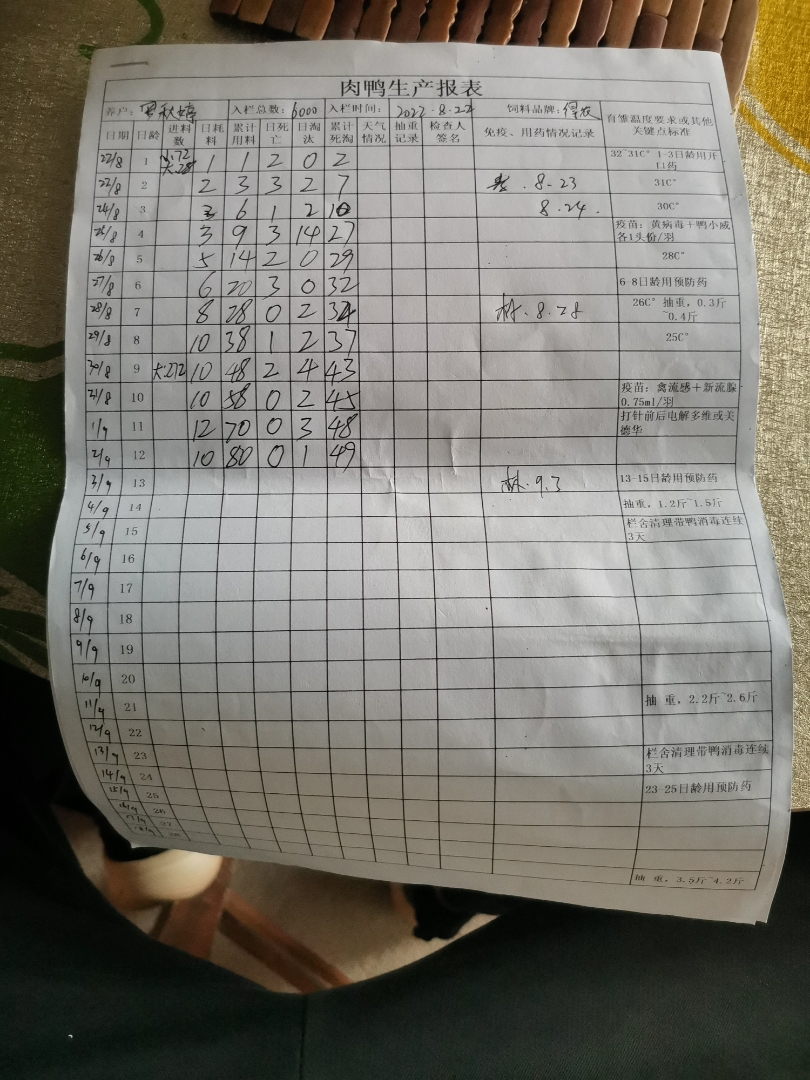 肉鸭生产报表
养户: 罗秋婷 入栏总数: 6000 入栏时间: 2022.8.22 饲料品牌:
日期 日龄 进料数 日耗料 累计用料 日死亡 日淘汰 累计死淘 天气情况 抽重记录 检查人签名 免疫、用药情况记录 育雏温度要求或其他关键点标准
22/8 1 小:72 大:28 1 1 2 0 2 32~31C° 1-3日龄用开口药
23/8 2 2 3 3 2 7 8.23 31C°
24/8 3 3 6 1 2 10 8.24. 30C°
25/8 4 3 9 3 14 27 疫苗: 黄病毒+鸭小威各1头份/羽
26/8 5 5 14 2 0 29 28C°
27/8 6 6 20 3 0 32 6-8日龄用预防药
28/8 7 8 28 0 2 34 林.8.28 26C° 抽重, 0.3斤~0.4斤
29/8 8 10 38 1 2 37 25C°
30/8 9 大:272 10 48 2 4 43
31/8 10 10 58 0 2 45 疫苗: 禽流感+新流腺-0.75ml/羽
1/9 11 12 70 0 3 48 打针前后电解多维或美德华
2/9 12 10 80 0 1 49
3/9 13 林.9.3 13-15日龄用预防药
4/9 14 抽重, 1.2斤~1.5斤
5/9 15 栏舍清理带鸭消毒连续3天
6/9 16
7/9 17
8/9 18
9/9 19
10/9 20
11/9 21 抽 重, 2.2斤~2.6斤
12/9 22
13/9 23 栏舍清理带鸭消毒连续3天
14/9 24 23-25日龄用预防药
15/9 25
16/9 26
17/9 27
18/9 28 抽 重, 3.5斤~4.2斤